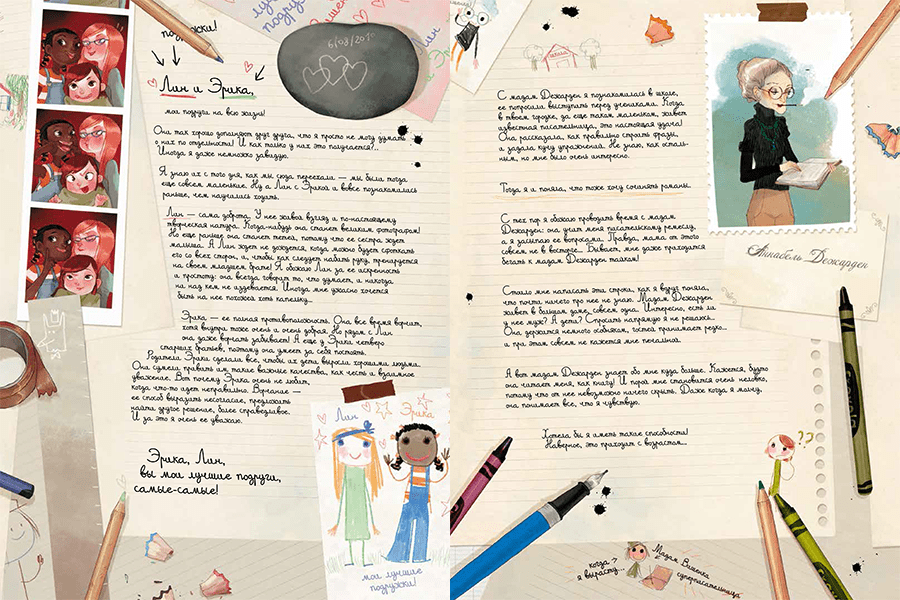 подружки!
Лин и Эрика,
мои подруги на всю жизнь!
Они так хорошо дополняют друг друга, что я просто не могу думать
о них по отдельности! И как только у них это получается?..
Иногда я даже немножко завидую.
Я знаю их с того дня, как мы сюда переехали — мы были тогда
еще совсем маленькие. Ну а Лин с Эрикой и вовсе познакомились
раньше, чем научились ходить.
Лин — сама доброта. У нее живой взгляд и по-настоящему
творческая натура. Когда-нибудь она станет великим фотографом!
Но еще раньше она станет тетей, потому что ее сестра ждет
малыша. А Лин ждет не дождется, когда можно будет сфоткать
его со всех сторон, и, чтобы как следует набить руку, тренируется
на своем младшем брате! Я обожаю Лин за ее искренность
и простоту: она всегда говорит то, что думает, и никогда
ни над кем не издевается. Иногда мне ужасно хочется
быть на нее похожей хоть капельку...
Эрика — ее полная противоположность. Она все время ворчит,
хотя внутри тоже очень и очень добрая. Но рядом с Лин
она даже ворчать забывает! А еще у Эрики четверо
старших братьев, поэтому она умеет за себя постоять.
Родители Эрики сделали все, чтобы их дети выросли хорошими людьми.
Они сумели привить им такие важные качества, как честь и взаимное
уважение. Вот почему Эрика очень не любит,
когда что-то идет неправильно. Ворчание —
ее способ выразить несогласие, предложить
найти другое решение, более справедливое.
И за это я очень ее уважаю.
Эрика, Лин,
вы мои лучшие подруги,
самые-самые!
6/08/2010
Лин
Эрика
мои лучшие
подружки!
С мадам Дежарден я познакомилась в школе,
ее попросили выступить перед учениками. Когда
в твоем городке, да еще таком маленьком, живет
известная писательница, это настоящая удача!
Она рассказала, как правильно строить фразы,
и задала кучу упражнений. Не знаю, как осталь-
ным, но мне было очень интересно.
Тогда я и поняла, что тоже хочу сочинять романы.
С тех пор я обожаю проводить время с мадам
Дежарден: она учит меня писательскому ремеслу,
а я засыпаю ее вопросами. Правда, мама от этого
совсем не в восторге... Бывает, мне даже приходится
бегать к мадам Дежарден тайком!
Стоило мне написать эти строки, как я вдруг поняла,
что почти ничего про нее не знаю. Мадам Дежарден
живет в большом доме, совсем одна. Интересно, есть ли
у нее муж? А дети? Спросить напрямую я не решаюсь.
Она держится немного особняком, гостей принимает редко...
и при этом совсем не кажется мне печальной.
А вот мадам Дежарден знает обо мне куда больше. Кажется, будто
она читает меня, как книгу! И порой мне становится очень неловко,
потому что от нее невозможно ничего скрыть. Даже когда я молчу,
она понимает все, что я чувствую.
Хотела бы я иметь такие способности!
Наверное, это приходит с возрастом...
Аннабель Дежарден
??
когда
я вырасту...
Мадам Вишенка
суперписательница